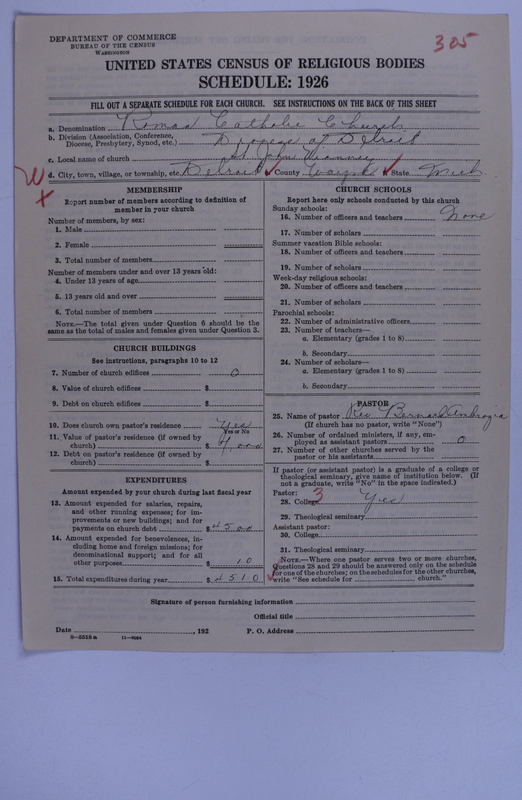 DEPARTMENT OF COMMERCE
BUREAU OF THE CENSUS
WASHINGTON
305
UNITED STATES CENSUS OF RELIGIOUS BODIES
SCHEDULE: 1926
FILL OUT A SEPARATE SCHEDULE FOR EACH CHURCH. SEE INSTRUCTIONS ON THE BACK OF THIS SHEET
a. Denomination Roman Catholic Church
b. Division (Association, Conference, Diocese, Presbytery, Synod, etc.) Diocese of Detroit
c. Local name of church John Vianney
d. City, town, village, or township, etc. Detroit County Wayne State Mich
W
x
MEMBERSHIP
Report number of members according to definition of
member in your church
Number of members, by sex:
1. Male
2. Female
3. Total number of members
Number of members under and over 13 years old:
4. Under 13 years of age
5. 13 years old and over
6. Total number of members
NOTE.—The total given under Question 6 should be the
same as the total of males and females given under Question 3.
CHURCH BUILDINGS
See instructions, paragraphs 10 to 12
7. Number of church edifices 0
8. Value of church edifices $
9. Debt on church edifices $
10. Does church own pastor's residence Yes
Yes or No
11. Value of pastor's residence (if owned by
church) $ 9000
12. Debt on pastor's residence (if owned by
church) $
EXPENDITURES
Amount expended by your church during last fiscal year
13. Amount expended for salaries, repairs,
and other running expenses; for im-
provements or new buildings; and for
payments on church debt $ 4500
14. Amount expended for benevolences, in-
cluding home and foreign missions; for
denominational support; and for all
other purposes $ 10
15. Total expenditures during year $ 4510
CHURCH SCHOOLS
Report here only schools conducted by this church
Sunday schools:
16. Number of officers and teachers None
17. Number of scholars
Summer vacation Bible schools:
18. Number of officers and teachers
19. Number of scholars
Week-day religious schools:
20. Number of officers and teachers
21. Number of scholars
Parochial schools:
22. Number of administrative officers
23. Number of teachers—
a. Elementary (grades 1 to 8)
b. Secondary
24. Number of scholars—
a. Elementary (grades 1 to 8)
b. Secondary
PASTOR
25. Name of pastor Rev Bernard
(If church has no pastor, write "None")
26. Number of ordained ministers, if any, em-
ployed as assistant pastors 0
27. Number of other churches served by the
pastor or his assistants
If pastor (or assistant pastor) is a graduate of a college or
theological seminary, give name of institution below. (If
not a graduate, write "No" in the space indicated.)
Pastor: 3
28. College Yes
29. Theological seminary
Assistant pastor:
30. College
31. Theological seminary
NOTE.—Where one pastor serves two or more churches,
Questions 28 and 29 should be answered only on the schedule
for one of the churches; on the schedules for the other churches,
write "See schedule for church."
Signature of person furnishing information
Official title
Date , 192 P. O. Address